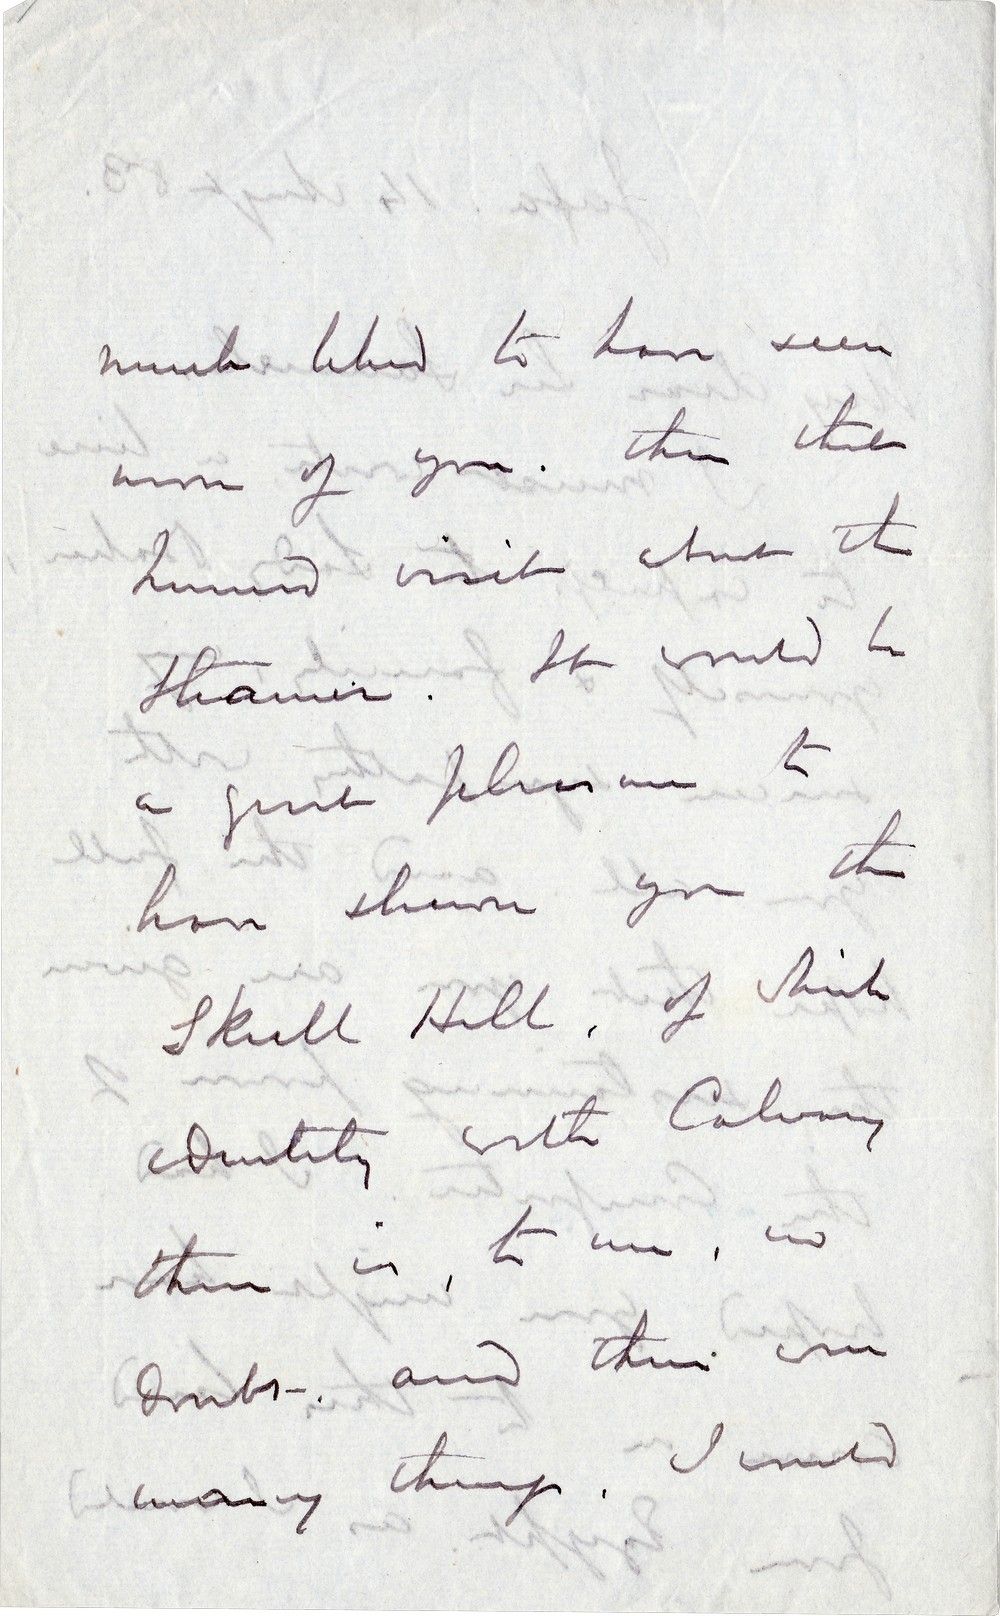 much liked to have seen
more of you. than that
hurried visit about the
steamer. It would be
a great pleasure to
have shewn you the
Skull Hill, of which
identity with Calvary
there is, to me, no
doubt. and there were
many things, I would